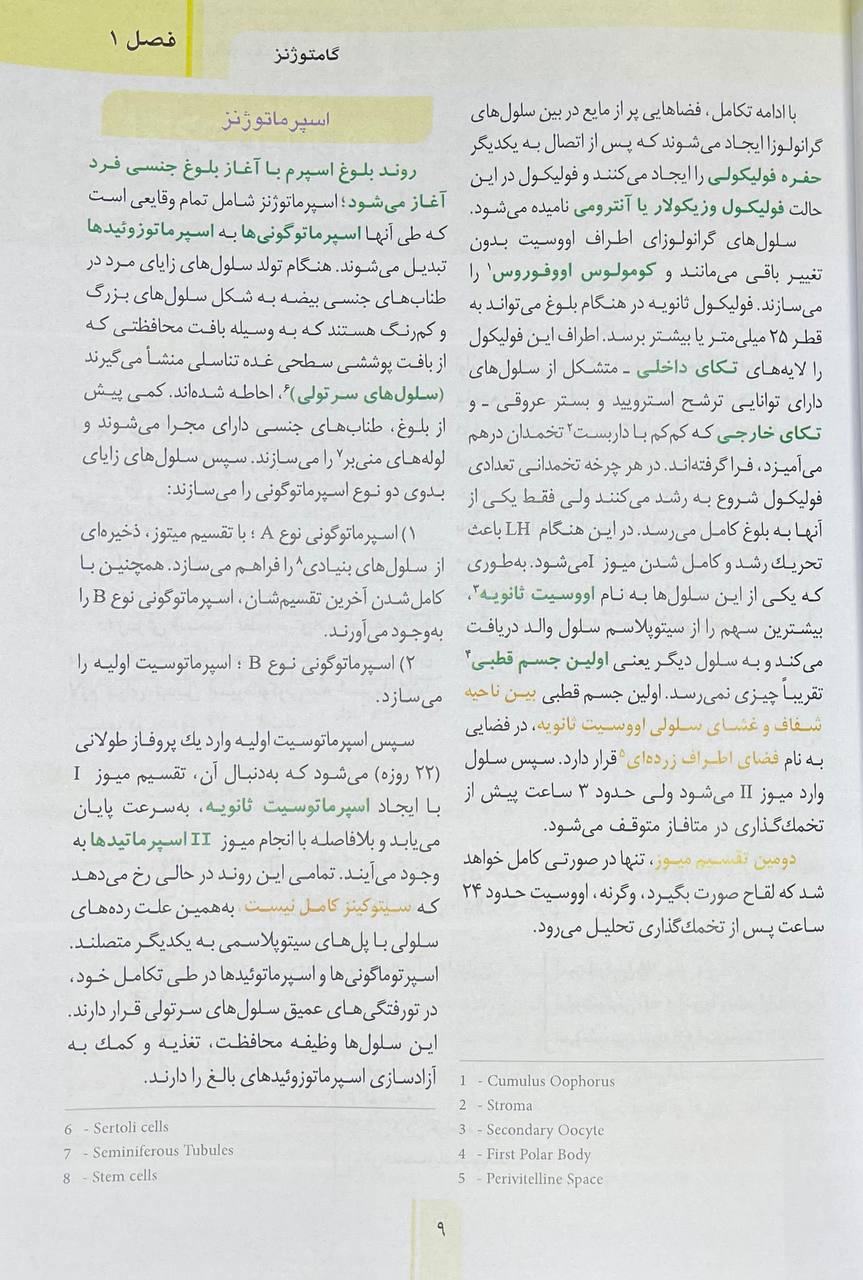 فصل ۱
گامتوژنز
با ادامه تکامل، فضاهایی پر از مایع در بین سلول‌های
گرانولوزا ایجاد می‌شوند که پس از اتصال به یکدیگر
حفره فولیکولی را ایجاد می‌کنند و فولیکول در این
حالت فولیکول وزیکولار یا آنترومی نامیده می‌شود.
سلول‌های گرانولوزای اطراف اووسیت بدون
تغییر باقی می‌مانند و کومولوس اووفوروس۱ را
می‌سازند. فولیکول ثانویه در هنگام بلوغ می‌تواند به
قطر ۲۵ میلی‌متر یا بیشتر برسد. اطراف این فولیکول
را لایه‌های تکای داخلی ـ متشکل از سلول‌های
دارای توانایی ترشح استرویید و بستر عروقی ـ و
تکای خارجی که کم‌کم با داربست۲ تخمدان درهم
می‌آمیزد، فرا گرفته‌اند. در هر چرخه تخمدانی تعدادی
فولیکول شروع به رشد می‌کنند ولی فقط یکی از
آنها به بلوغ کامل می‌رسد. در این هنگام LH باعث
تحریك رشد و کامل شدن میوز I می‌شود. به‌طوری
که یکی از این سلول‌ها به نام اووسیت ثانویه۳،
بیشترین سهم را از سیتوپلاسم سلول والد دریافت
می‌کند و به سلول دیگر یعنی اولین جسم قطبی۴
تقریباً چیزی نمی‌رسد. اولین جسم قطبی بین ناحیه
شفاف و غشای سلولی اووسیت ثانویه، در فضایی
به نام فضای اطراف زرده‌ای۵ قرار دارد. سپس سلول
وارد میوز II می‌شود ولی حدود ۳ ساعت پیش از
تخمك‌گذاری در متافاز متوقف می‌شود.
دومین تقسیم میوز، تنها در صورتی کامل خواهد
شد که لقاح صورت بگیرد، وگرنه، اووسیت حدود ۲۴
ساعت پس از تخمك‌گذاری تحلیل می‌رود.
1 - Cumulus Oophorus
2 - Stroma
3 - Secondary Oocyte
4 - First Polar Body
5 - Perivitelline Space
اسپرماتوژنز
روند بلوغ اسپرم با آغاز بلوغ جنسی فرد
آغاز می‌شود؛ اسپرماتوژنز شامل تمام وقایعی است
که طی آنها اسپرماتوگونی‌ها به اسپرماتوزوئیدها
تبدیل می‌شوند. هنگام تولد سلول‌های زایای مرد در
طناب‌های جنسی بیضه به شکل سلول‌های بزرگ
و کم‌رنگ هستند که به وسیله بافت محافظتی که
از بافت پوششی سطحی غده تناسلی منشأ می‌گیرند
(سلول‌های سرتولی)۶، احاطه شده‌اند. کمی پیش
از بلوغ، طناب‌های جنسی دارای مجرا می‌شوند و
لوله‌های منی‌بر۷ را می‌سازند. سپس سلول‌های زایای
بدوی دو نوع اسپرماتوگونی را می‌سازند:
۱) اسپرماتوگونی نوع A ؛ با تقسیم میتوز، ذخیره‌ای
از سلول‌های بنیادی۸ را فراهم می‌سازد. همچنین با
کامل شدن آخرین تقسیم‌شان، اسپرماتوگونی نوع B را
به‌وجود می‌آورند.
۲) اسپرماتوگونی نوع B ؛ اسپرماتوسیت اولیه را
می‌سازد.
سپس اسپرماتوسیت اولیه وارد یك پروفاز طولانی
(۲۲ روزه) می‌شود که به‌دنبال آن، تقسیم میوز I
با ایجاد اسپرماتوسیت ثانویه، به‌سرعت پایان
می‌یابد و بلافاصله با انجام میوز II اسپرماتیدها به
وجود می‌آیند. تمامی این روند در حالی رخ می‌دهد
که سیتوکینز کامل نیست. به‌همین علت رده‌های
سلولی با پل‌های سیتوپلاسمی به یکدیگر متصلند.
اسپرتوماگونی‌ها و اسپرماتوئیدها در طی تکامل خود،
در تورفتگی‌های عمیق سلول‌های سرتولی قرار دارند.
این سلول‌ها وظیفه محافظت، تغذیه و کمك به
آزادسازی اسپرماتوزوئیدهای بالغ را دارند.
6 - Sertoli cells
7 - Seminiferous Tubules
8 - Stem cells
۹